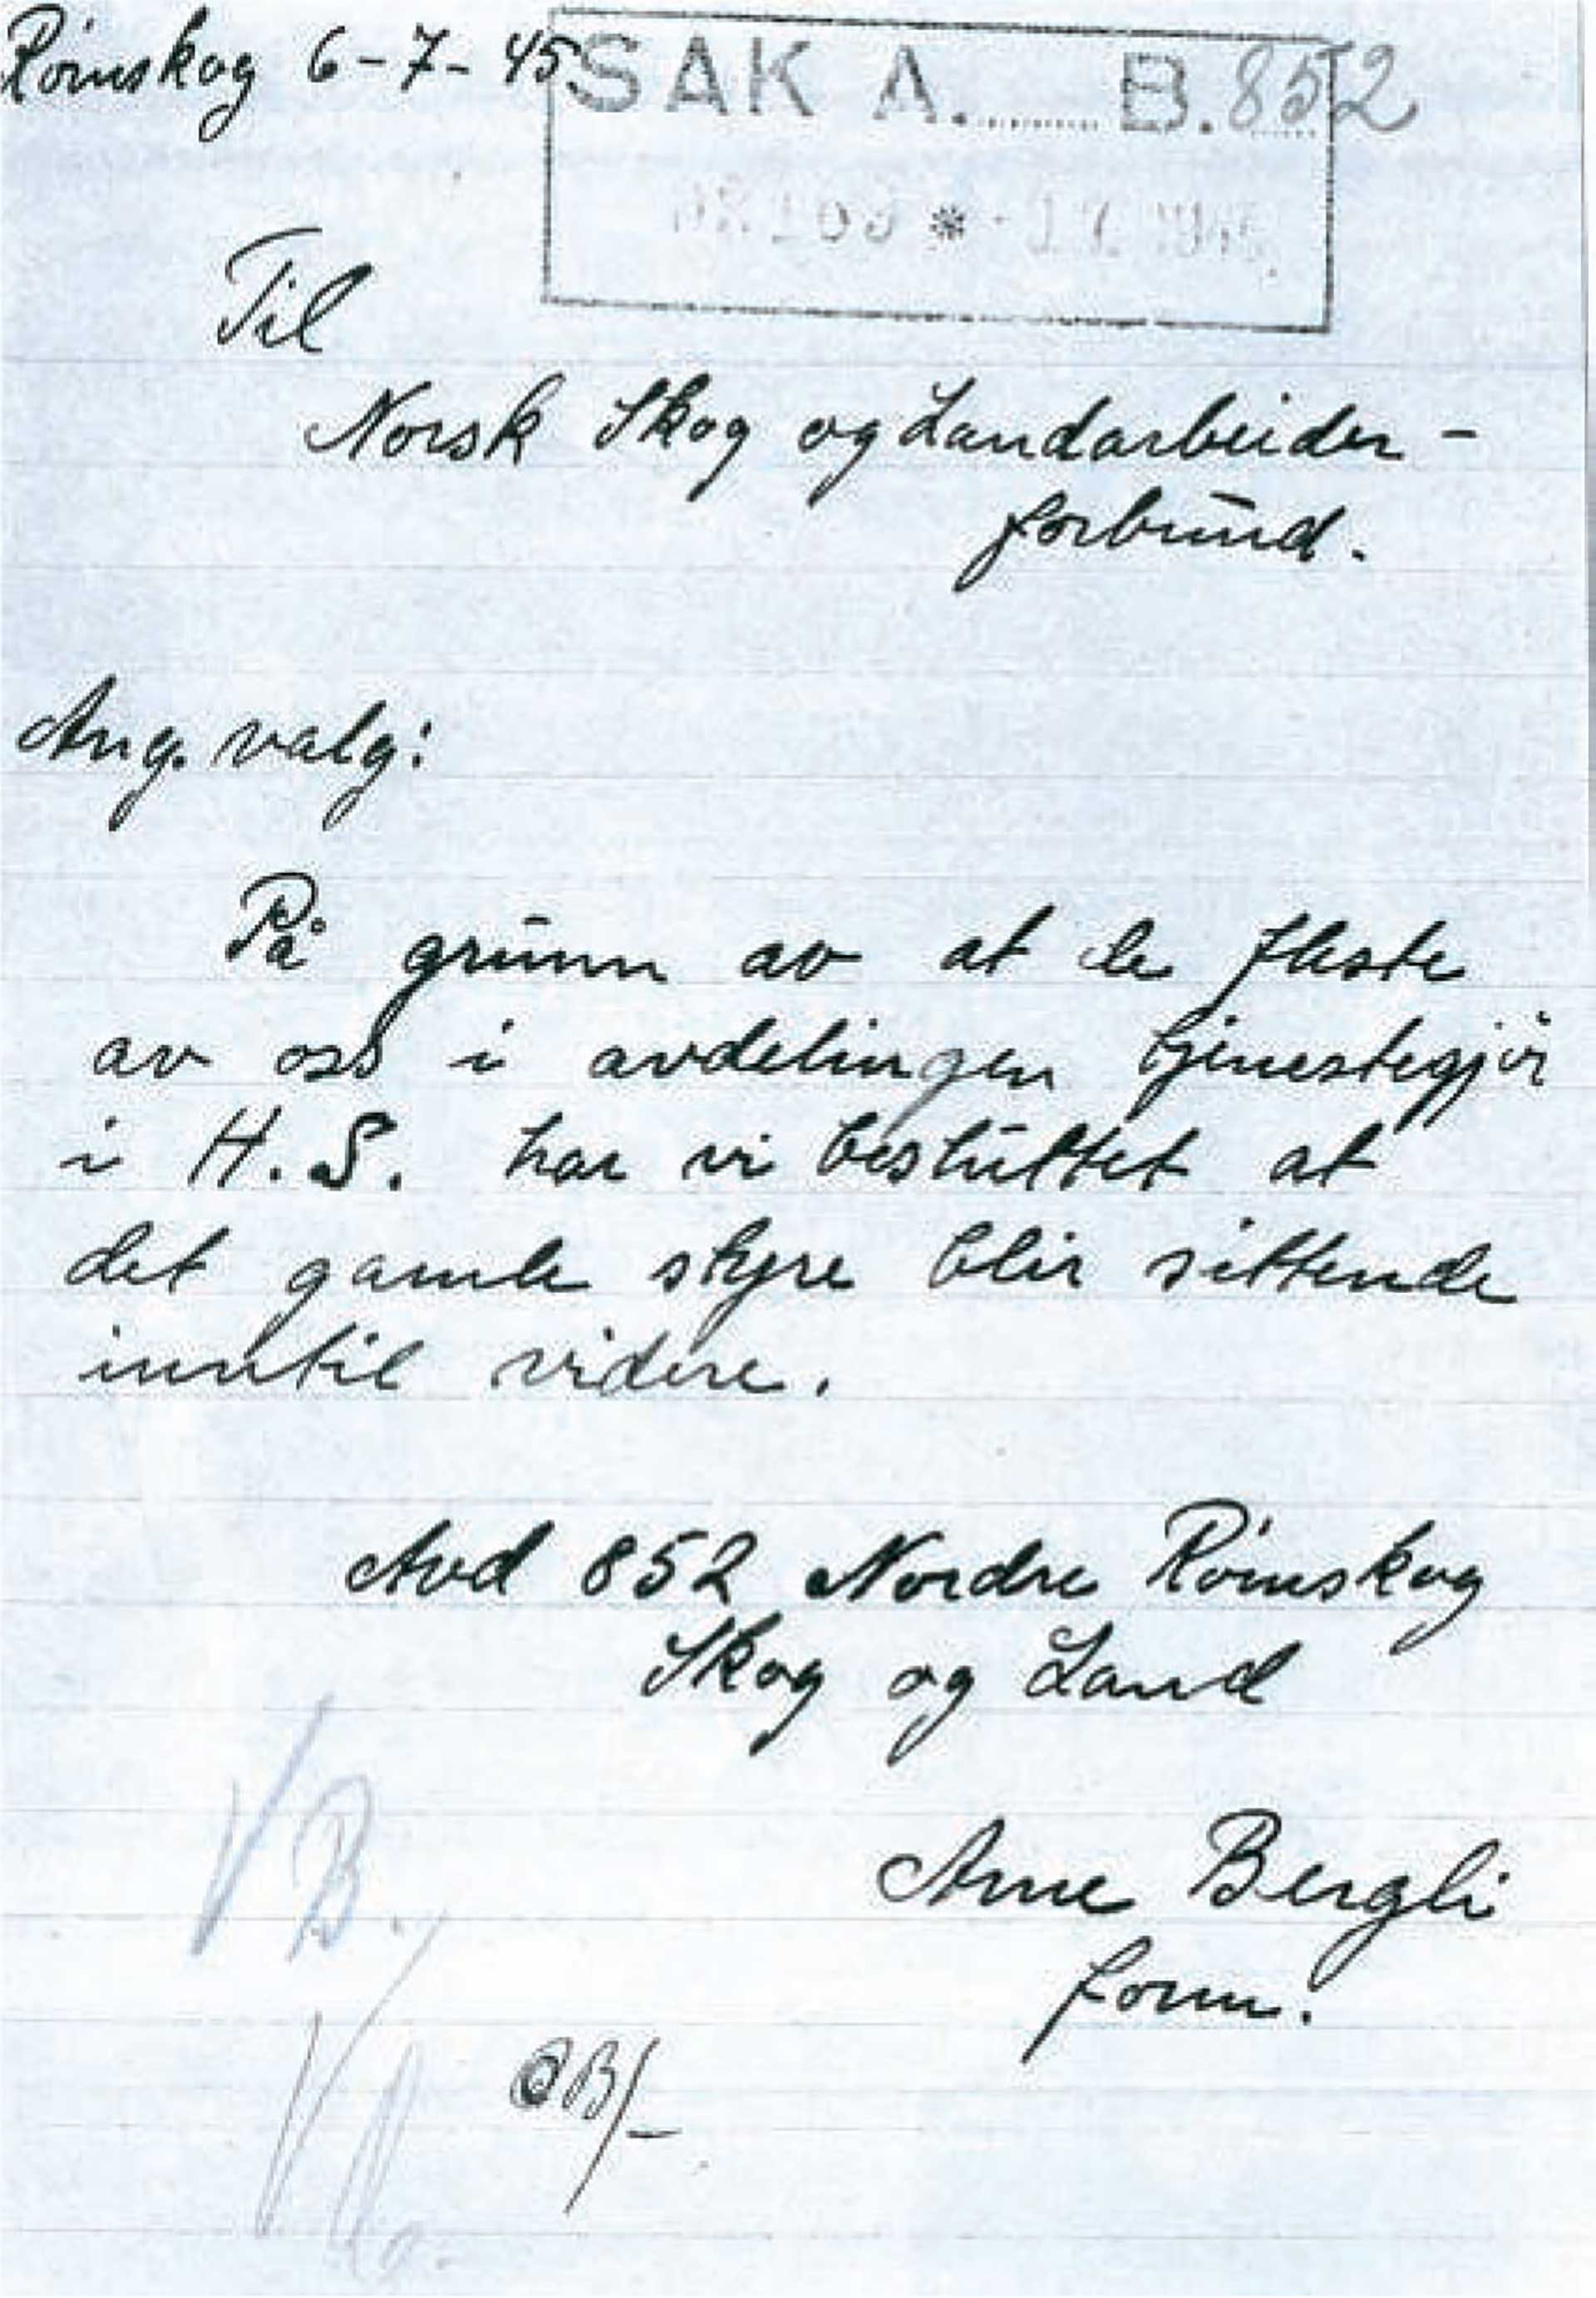 Rømskog 6-7-45
SAK A. ........ B. 852
Til
Norsk Skog og Landarbeider-
forbund.
Ang. valg:
På grunn av at de fleste
av oss i avdelingen tjenestegjør
i H.S. har vi besluttet at
det gamle styre blir sittende
inntil videre.
Avd 852 Nordre Rømskog
Skog og Land
Arne Bergli
form.